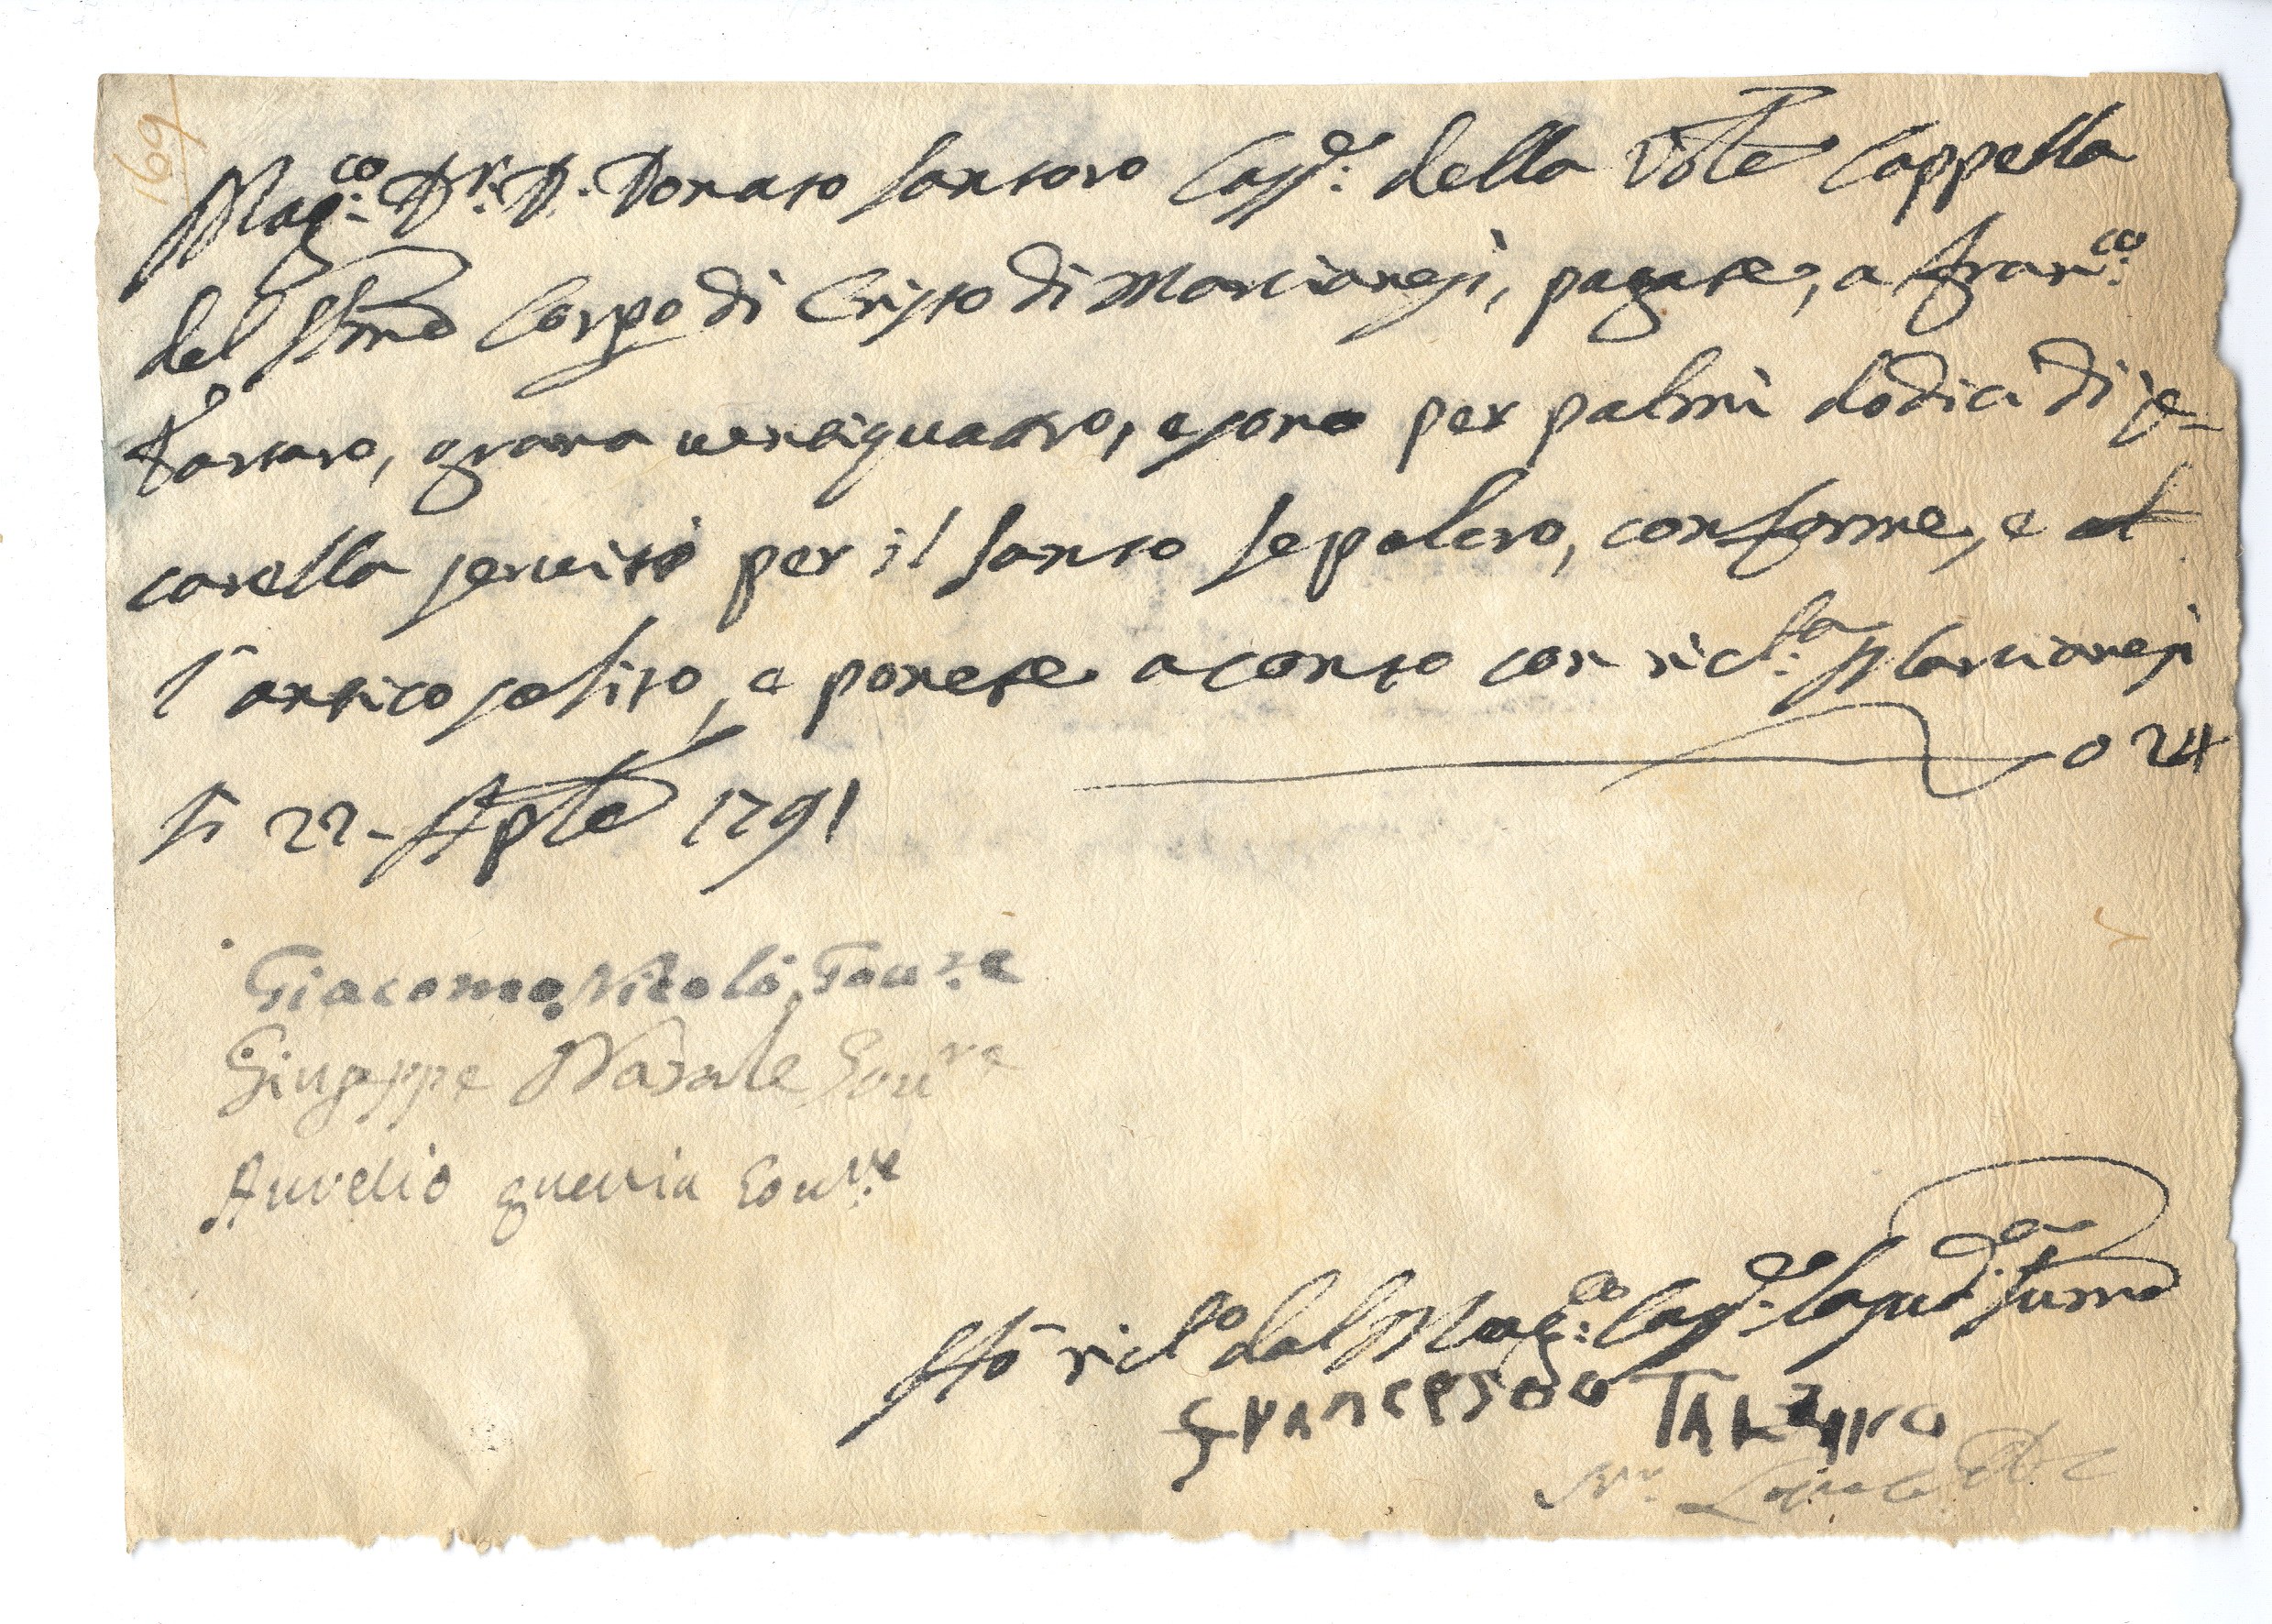 169
Mag:co Dr. D. Donato Santoro Cass:e della Vble Cappella
del SSmo Corpo di Cristo di Marcianesi, pagate, a Fran:co
Tartaro, grana ventiquattro, e sono per palmi dodici di se-
tarella servito per il Santo Sepolcro, conforme, e al
l'antico solito, e ponete a conto con ric:ta Marcianesi
li 22 Aple 1791 0 24
Giacomo Nicolò Gov:re
Giuseppe Natale Gov:re
Aurelio guerria Gov:re
Hò ric:to dal Mag:co Cass:e la sud:a summa
Francescho